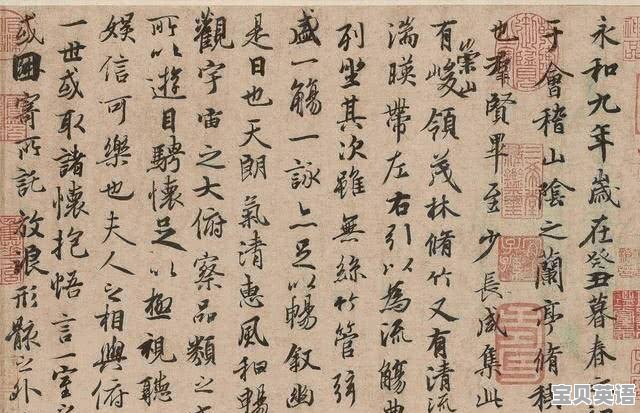 永和九年歲在癸丑暮春之
于會稽山陰之蘭亭脩稧
也羣賢畢至少長咸集此
有崇山峻領茂林脩竹又有清流
湍暎帶左右引以為流觴曲
列坐其次雖無絲竹管弦
盛一觴一詠亦足以暢敘幽
是日也天朗氣清惠風和暢
觀宇宙之大俯察品類之
所以遊目騁懷足以極視聽
娛信可樂也夫人之相與俯
一世或取諸懷抱悟言一室
或因寄所託放浪形骸之外
宝贝英语